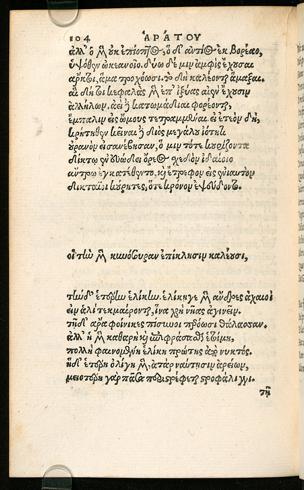 104 ἈΡΑΤΟΥ
ἀλλ' ὁ μὲν οὐκ ἐπίοπτος, ὁ δ' ἀντίος ἐκ βορέαο,
ὑψόθεν ὠκεανοῖο. δύω δέ μιν ἀμφὶς ἔχουσαι
ἄρκτοι, ἅμα τροχόωσι. τὸ δὴ καλέονται ἅμαξαι.
αἱ δή τοι κεφαλὰς μὲν ἐπ' ἰξύας αἰὲν ἔχουσιν
ἀλλήλων. αἰεὶ δὲ κατωμάδιαι φορέονται,
ἔμπαλιν εἰς ὤμους τετραμμέναι. εἰ ἐτεὸν δή,
κρήτηθεν κεῖναί γε διὸς μεγάλου ἰότητι
οὐρανὸν εἰσανέβησαν, ὅ μιν τότε κουρίζοντα
δίκτῳ ἐν εὐώδει ὄρεος σχεδὸν ἰδαίοιο
ἄντρῳ ἐγκατέθεντο, καὶ ἔτρεφον εἰς ἐνιαυτὸν
δικταῖοι κούρητες, ὅτε κρόνον ἐψεύδοντο.
τὴν μὲν κυνόσουραν ἐπίκλησιν καλέουσι,
τὴν δ' ἑτέρην ἑλίκην. ἑλίκῃ γε μὲν ἄνδρες ἀχαιοὶ
εἰν ἁλὶ τεκμαίρονται, ἵνα χρὴ νῆας ἀγινεῖν.
τῇ δ' ἄρα φοίνικες πίσυνοι περόωσι θάλασσαν.
ἀλλ' ἡ μὲν καθαρὴ καὶ ἐπιφράσσασθαι ἑτοίμη,
πολλὴ φαινομένη ἑλίκη πρώτης ἀπὸ νυκτός.
ἡ δ' ἑτέρη ὀλίγη μὲν, ἀτὰρ ναύτῃσιν ἀρείων,
μειοτέρη γὰρ πᾶσα περιστρέφεται στροφάλιγγι.
τῇ